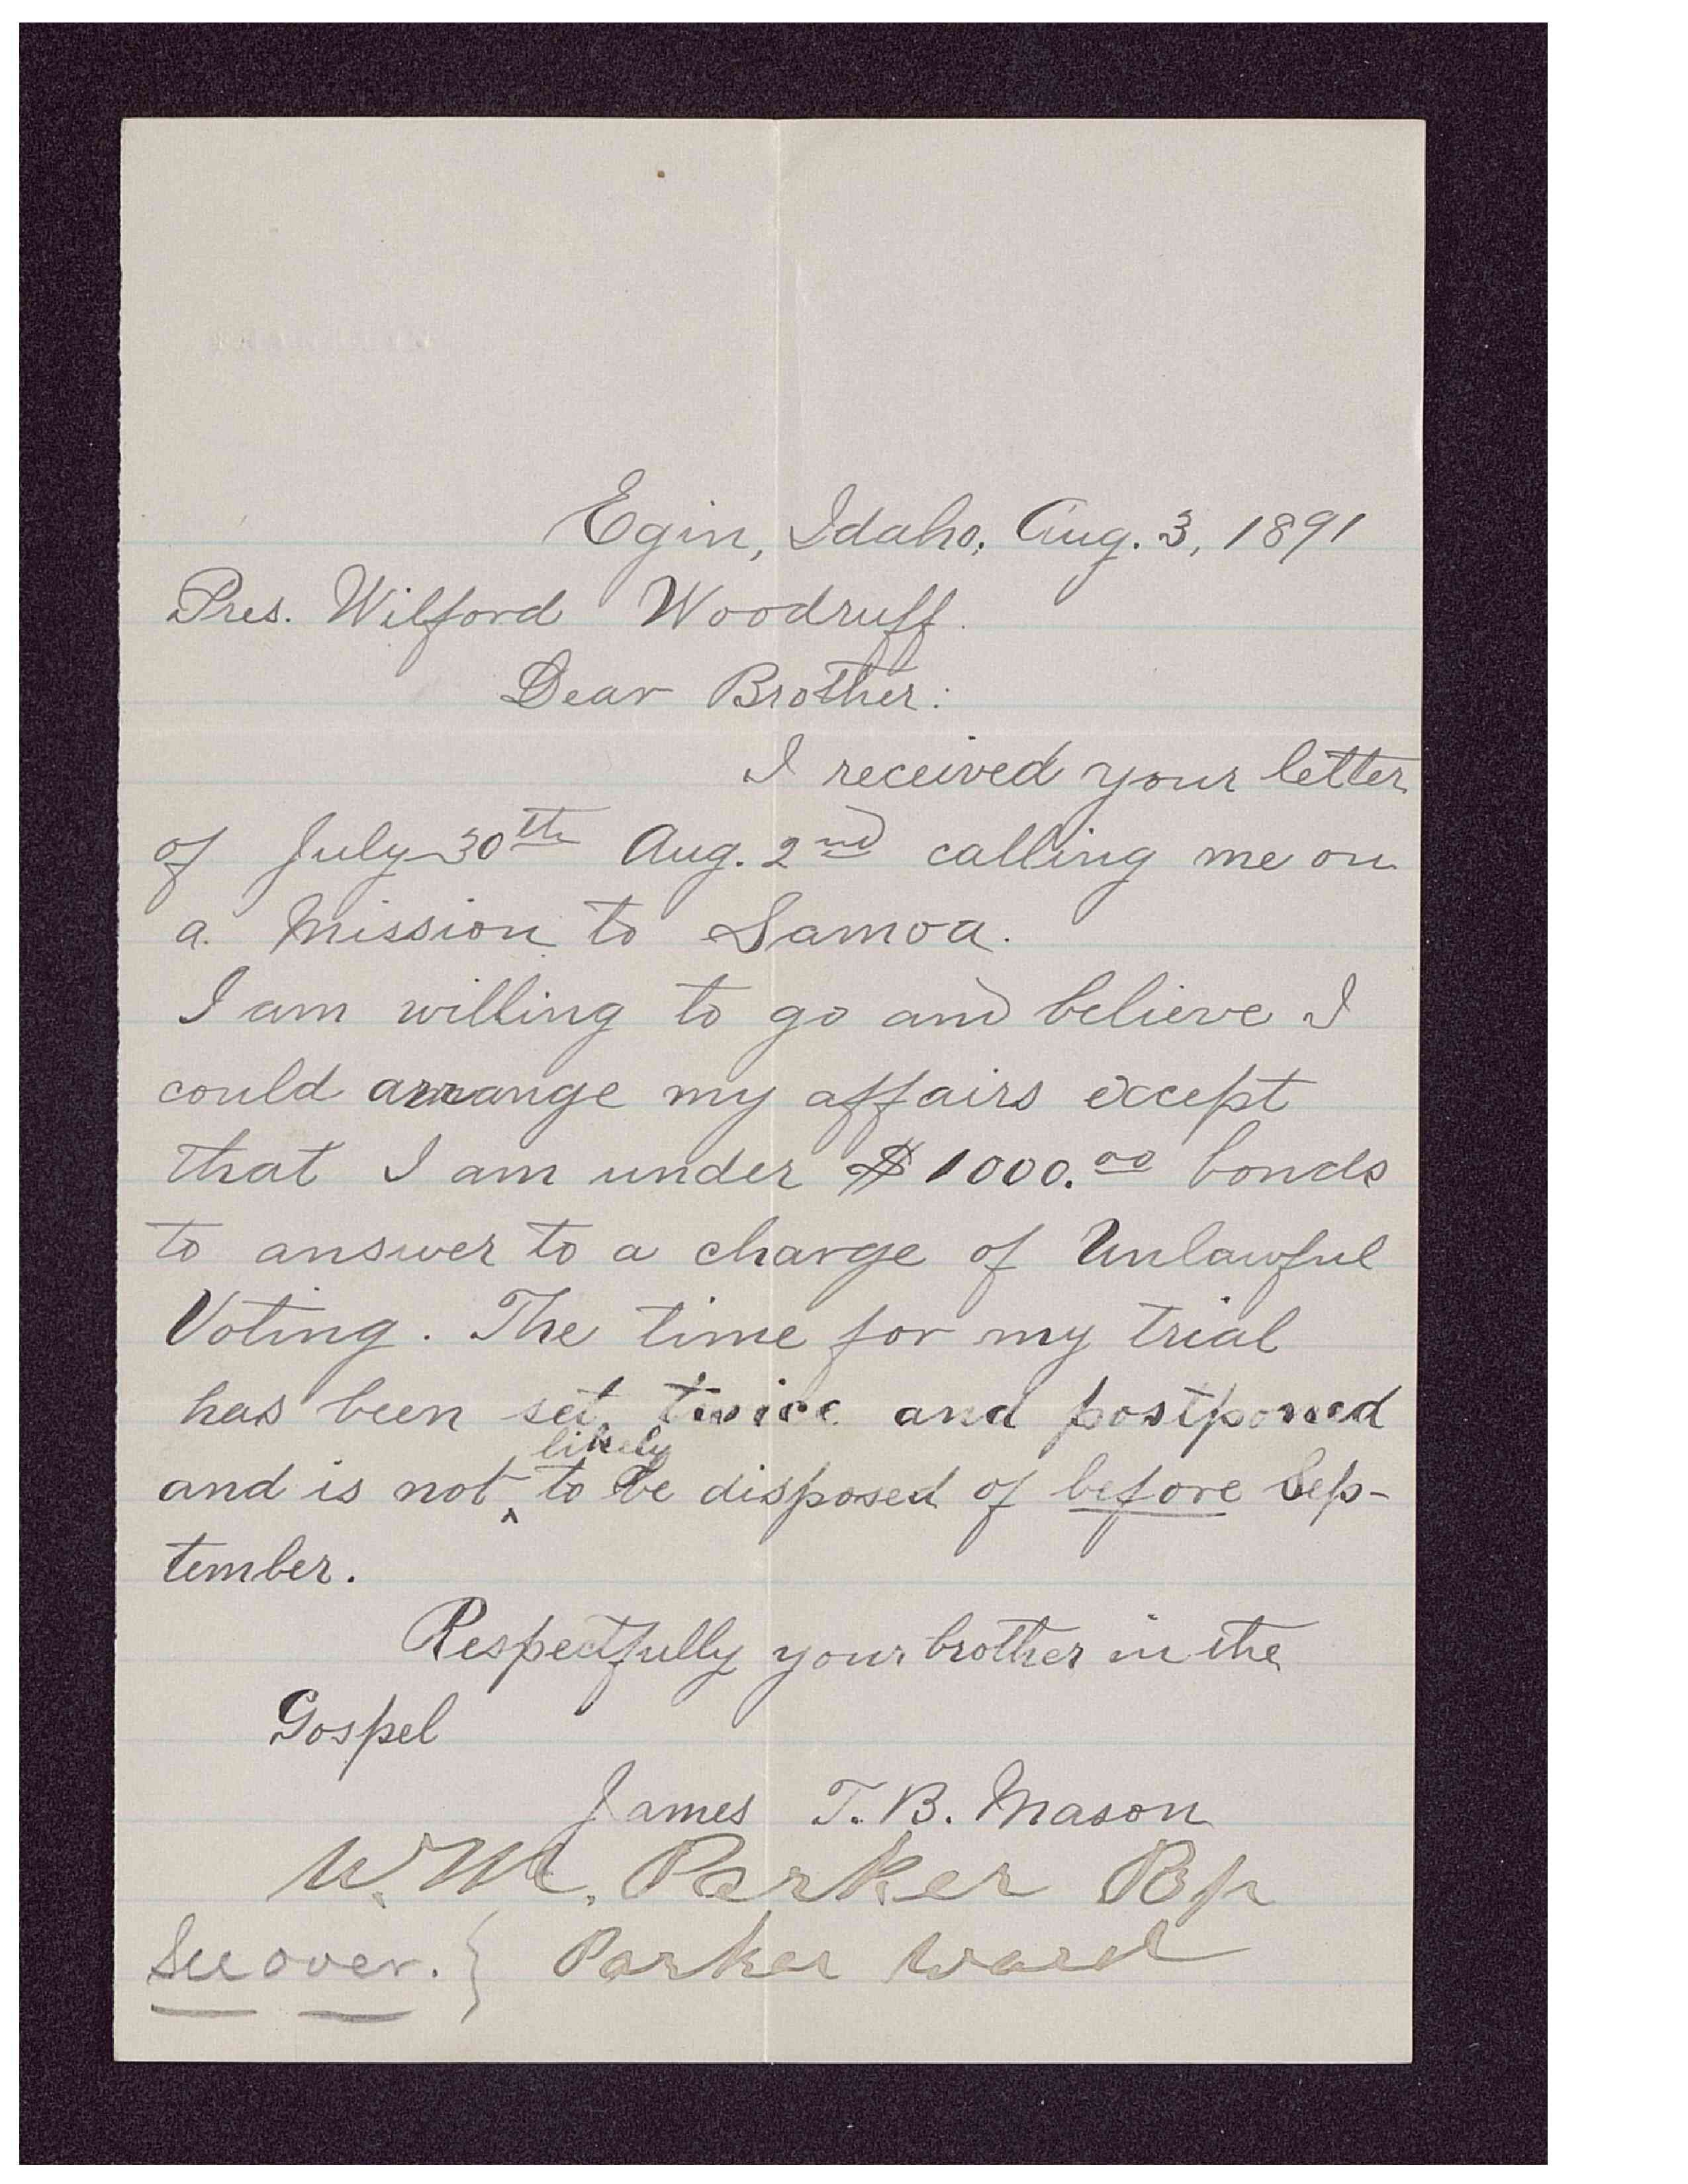 Egin, Idaho, Aug. 3, 1891
Pres. Wilford Woodruff.
Dear Brother:
I received your letter
of July 30th Aug. 2nd calling me on
a Mission to Samoa.
I am willing to go and believe I
could arrange my affairs except
that I am under $1000.00 bonds
to answer to a charge of Unlawful
Voting. The time for my trial
has been set twice and postponed
likely
and is not ^ to be disposed of before Sep-
tember.
Respectfully your brother in the
Gospel
James T. B. Mason
W. M. Parker Bp
See over. } Parker Ward